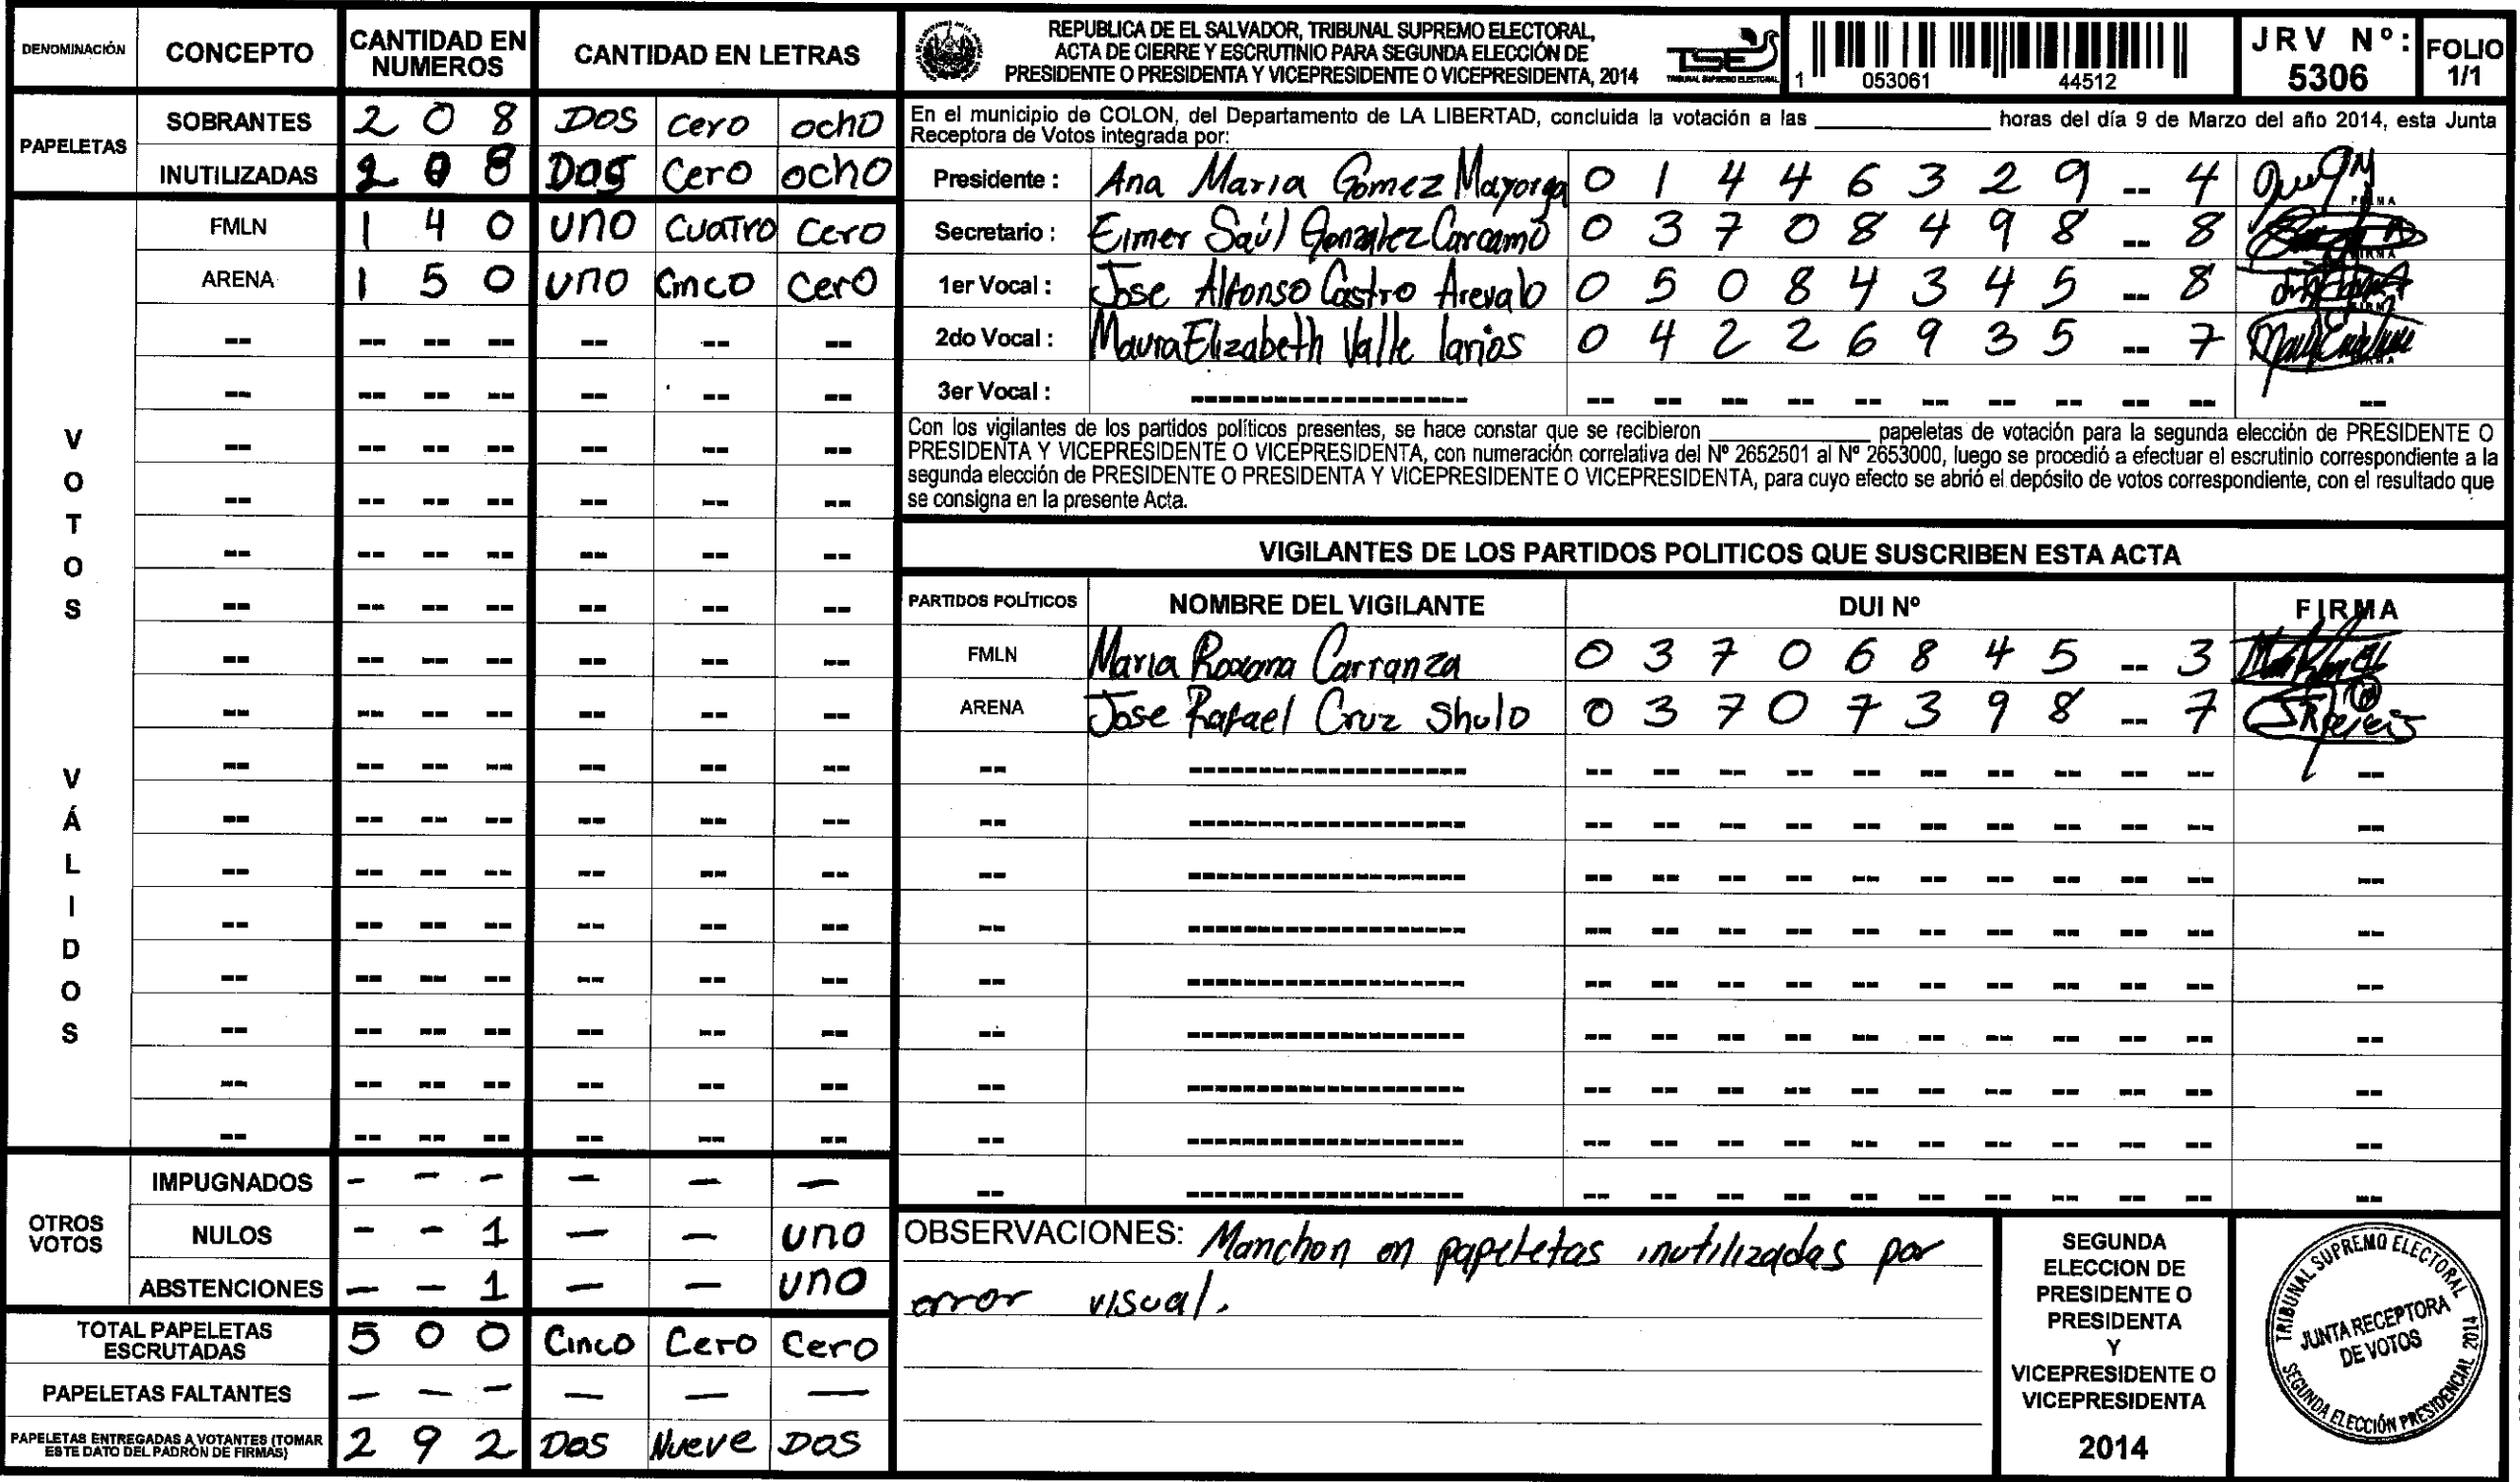 DENOMINACIÓN CONCEPTO CANTIDAD EN NUMEROS CANTIDAD EN LETRAS
PAPELETAS
SOBRANTES 2 0 8 DOS cero ocho
INUTILIZADAS 2 0 8 Dos cero ocho
VOTOS VÁLIDOS
FMLN 1 4 0 uno cuatro cero
ARENA 1 5 0 uno cinco cero
OTROS VOTOS
IMPUGNADOS - - - - - -
NULOS - - 1 - - uno
ABSTENCIONES - - 1 - - uno
TOTAL PAPELETAS ESCRUTADAS 5 0 0 Cinco Cero Cero
PAPELETAS FALTANTES - - - - - -
PAPELETAS ENTREGADAS A VOTANTES (TOMAR ESTE DATO DEL PADRÓN DE FIRMAS) 2 9 2 Dos Nueve Dos
REPUBLICA DE EL SALVADOR, TRIBUNAL SUPREMO ELECTORAL,
ACTA DE CIERRE Y ESCRUTINIO PARA SEGUNDA ELECCIÓN DE
PRESIDENTE O PRESIDENTA Y VICEPRESIDENTE O VICEPRESIDENTA, 2014
TSE
TRIBUNAL SUPREMO ELECTORAL
1 053061 44512
JRV Nº: 5306
FOLIO 1/1
En el municipio de COLON, del Departamento de LA LIBERTAD, concluida la votación a las ____________ horas del día 9 de Marzo del año 2014, esta Junta
Receptora de Votos integrada por:
Presidente : Ana Maria Gomez Mayorga 0 1 4 4 6 3 2 9 -- 4
Secretario : Eimer Saúl Gonzalez Carcamo 0 3 7 0 8 4 9 8 -- 8
1er Vocal : Jose Alfonso Castro Arevalo 0 5 0 8 4 3 4 5 -- 8
2do Vocal : Maura Elizabeth Valle larios 0 4 2 2 6 9 3 5 -- 7
3er Vocal :
Con los vigilantes de los partidos políticos presentes, se hace constar que se recibieron ____________ papeletas de votación para la segunda elección de PRESIDENTE O
PRESIDENTA Y VICEPRESIDENTE O VICEPRESIDENTA, con numeración correlativa del Nº 2652501 al Nº 2653000, luego se procedió a efectuar el escrutinio correspondiente a la
segunda elección de PRESIDENTE O PRESIDENTA Y VICEPRESIDENTE O VICEPRESIDENTA, para cuyo efecto se abrió el depósito de votos correspondiente, con el resultado que
se consigna en la presente Acta.
VIGILANTES DE LOS PARTIDOS POLITICOS QUE SUSCRIBEN ESTA ACTA
PARTIDOS POLÍTICOS NOMBRE DEL VIGILANTE DUI Nº FIRMA
FMLN Maria Roxana Carranza 0 3 7 0 6 8 4 5 -- 3
ARENA Jose Rafael Cruz Shulo 0 3 7 0 7 3 9 8 -- 7
OBSERVACIONES: Manchon en papeletas inutilizadas por
error visual.
SEGUNDA
ELECCION DE
PRESIDENTE O
PRESIDENTA
Y
VICEPRESIDENTE O
VICEPRESIDENTA
2014
TRIBUNAL SUPREMO ELECTORAL
JUNTA RECEPTORA
DE VOTOS
SEGUNDA ELECCIÓN PRESIDENCIAL 2014